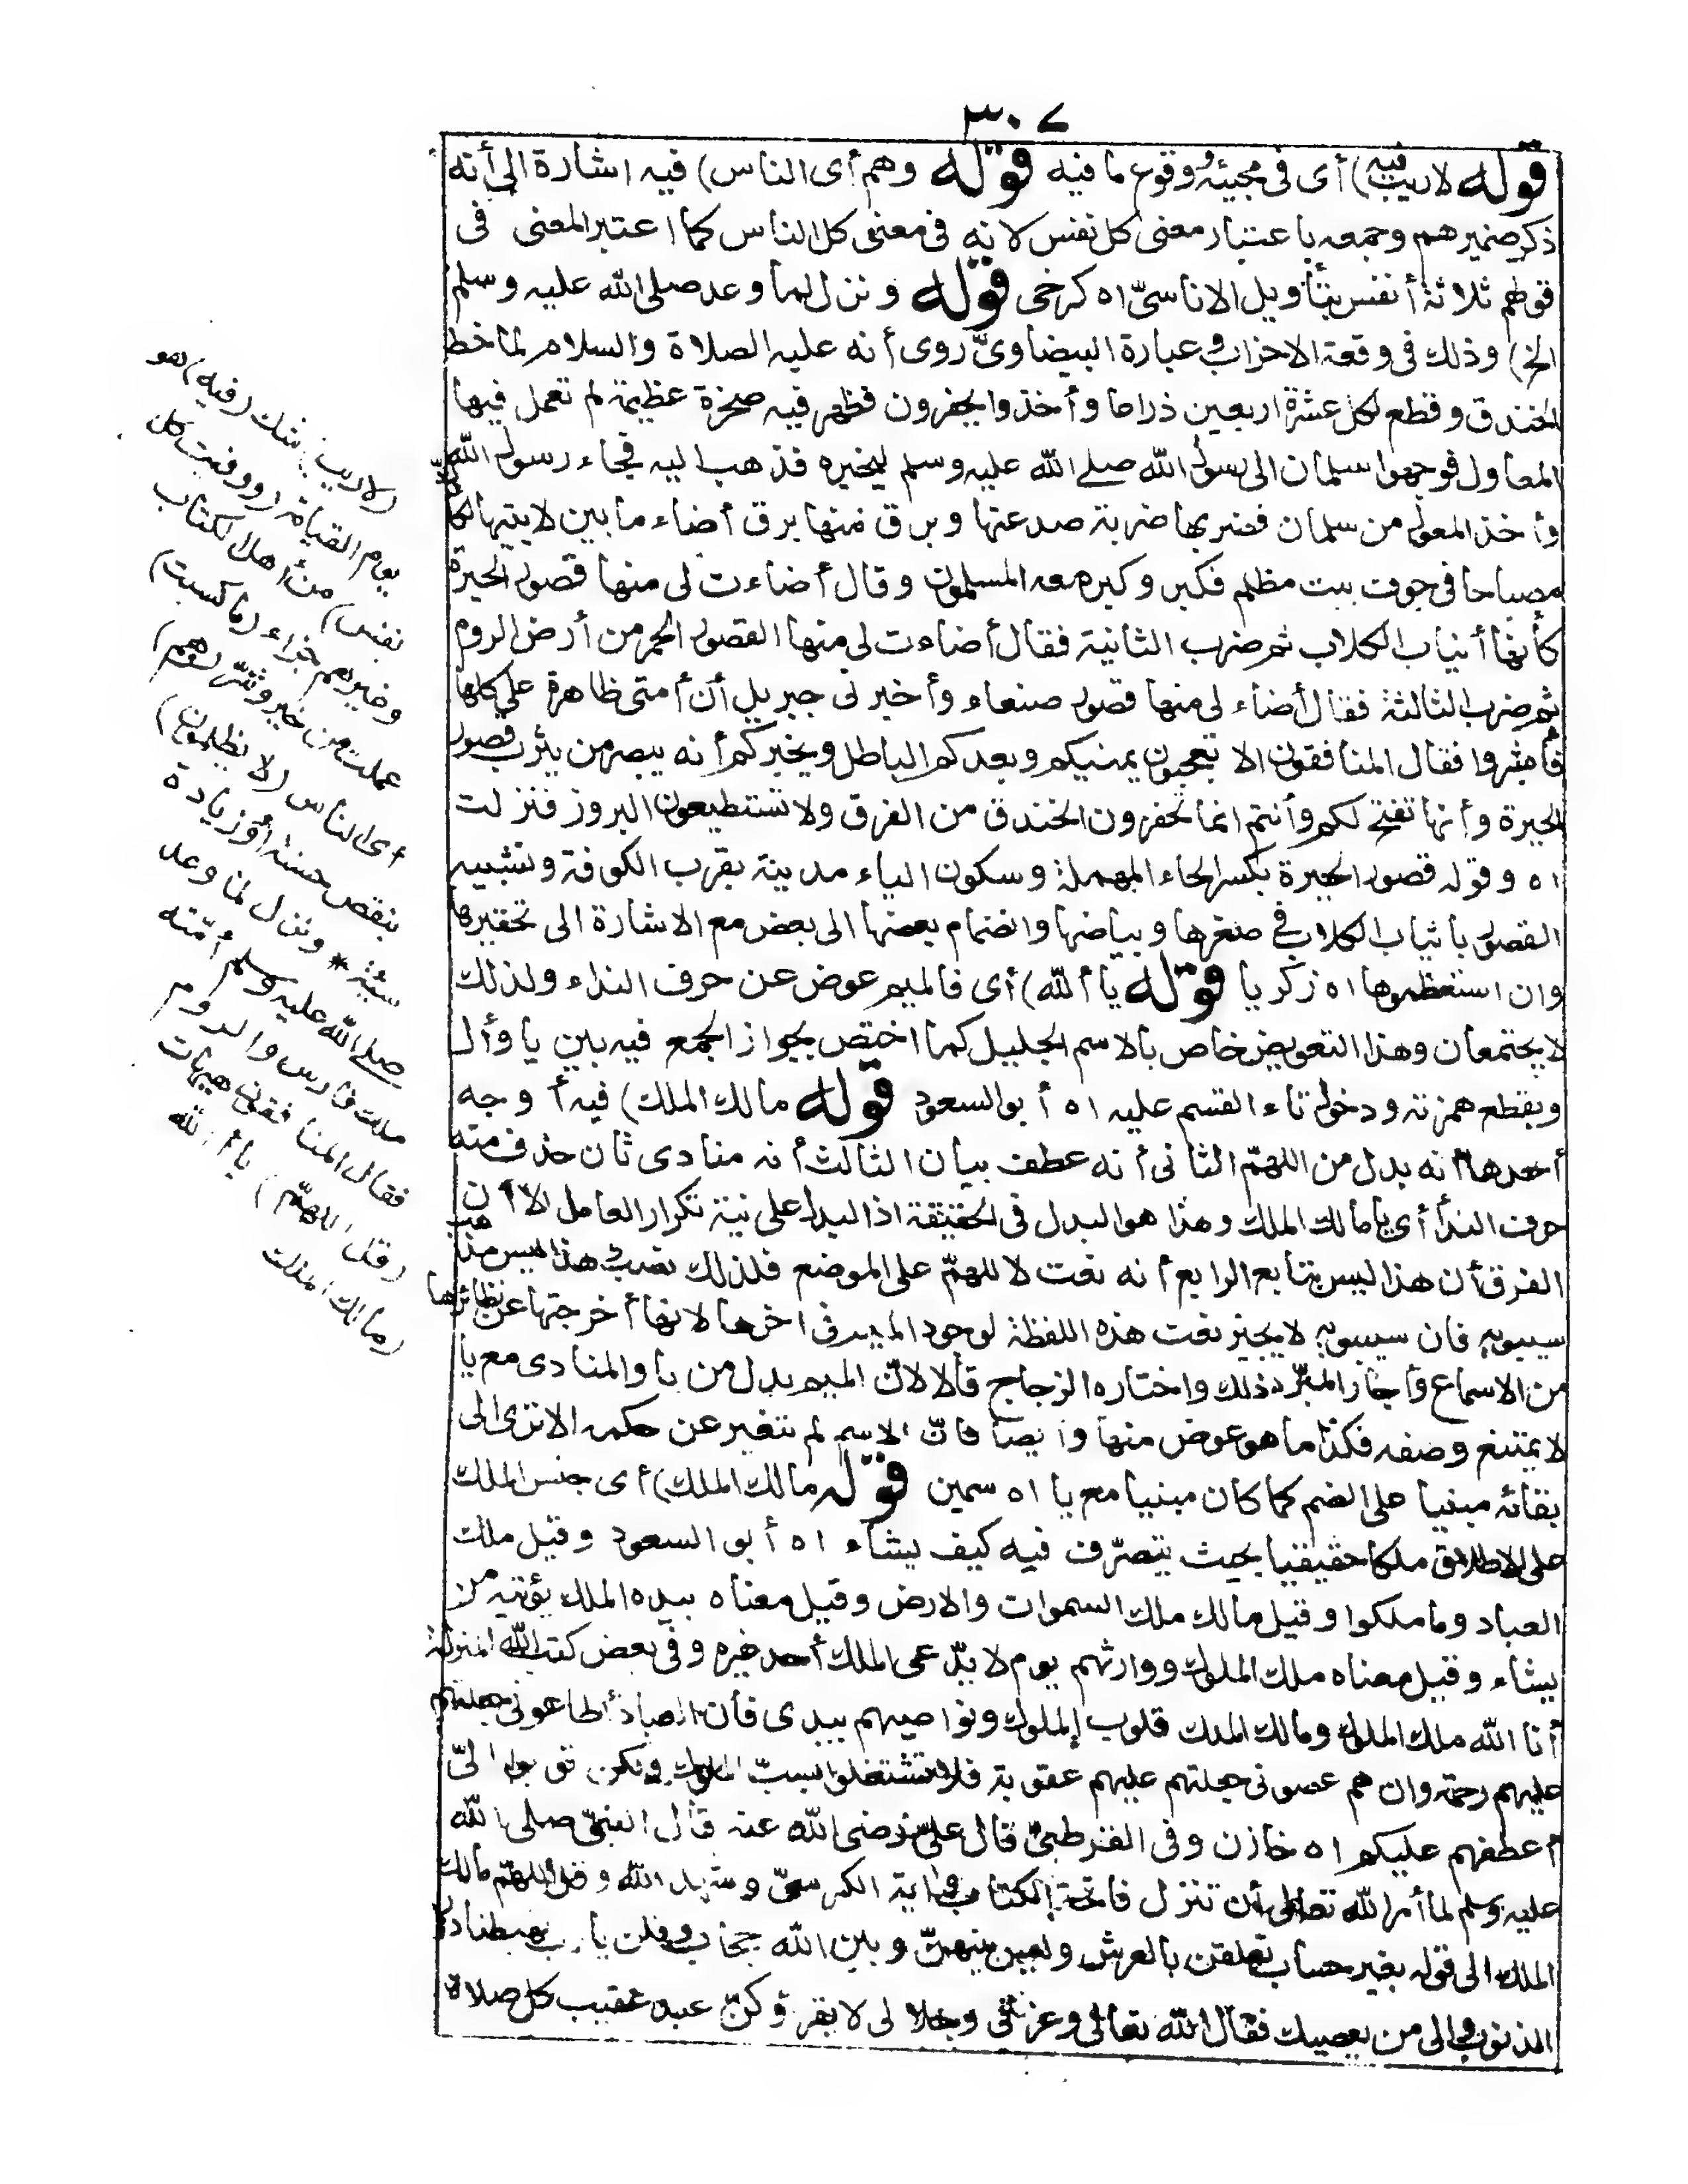 ٣٠٧
قوله لاريب فيه) أى فى مجيئه ووقوع ما فيه قوله وهم أى الناس) فيه اشارة الى أنه
ذكر ضميرهم وجمعه باعتبار معنى كل نفس لانه فى معنى كل الناس كما اعتبر المعنى فى
قولهم ثلاثة أنفس بتأويل الاناسىّ اه كرخى قوله ونزل لما وعد صلى الله عليه وسلم
الخ) وذلك فى وقعة الاحزاب وعبارة البيضاوىّ روى أنه عليه الصلاة والسلام لما خط
الخندق وقطع لكل عشرة اربعين ذراعا وأخذوا يحفرون فظهر فيه صخرة عظيمة لم تعمل فيها
المعاول فوجهوا سلمان الى رسول الله صلى الله عليه وسلم ليخبره فذهب اليه فجاء رسول الله
وأخذ المعول من سلمان فضربها ضربة صدعتها وبرق منها برق أضاء ما بين لابتيها لكأن
مصباحا فى جوف بيت مظلم فكبر وكبر معه المسلمون وقال أضاءت لى منها قصور الحيرة
كأنها أنياب الكلاب ثم ضرب الثانية فقال أضاءت لى منها القصور الحمر من أرض الروم
ثم ضرب الثالثة فقال أضاء لى منها قصور صنعاء وأخبرنى جبريل أن أمتى ظاهرة على كلها
فأبشروا فقال المنافقون الا تعجبون يمنيكم ويعدكم الباطل ويخبركم أنه يبصر من يثرب قصور
الحيرة وأنها تفتح لكم وأنتم انما تحفرون الخندق من الفرق ولا تستطيعون البروز فنزلت
اه وقوله قصور الحيرة بكسر الحاء المهملة وسكون الياء مدينة بقرب الكوفة وتشبيه
القصور بانياب الكلاب فى صغرها وبياضها وانضمام بعضها الى بعض مع الاشارة الى تحقيرها
وان استعظموها اه زكريا قوله يا ألله) أى فالميم عوض عن حرف النداء ولذلك
لا يجتمعان وهذا التعويض خاص بالاسم الجليل كما اختص بجواز الجمع فيه بين يا وأل
وبقطع همزته ودخول تاء القسم عليه اه أبو السعود قوله مالك الملك) فيه أوجه
أحدها أنه بدل من اللهمّ الثانى أنه عطف بيان الثالث أنه منادى ثان حذف منه
حرف الندأ أى يا مالك الملك وهذا هو البدل فى الحقيقة اذ البدل على نية تكرار العامل الا أن
الفرق أن هذا ليس بتابع الرابع أنه نعت لاللهمّ على الموضع فلذلك نصب هذا ليس مذهب
سيبويه فان سيبويه لا يجيز نعت هذه اللفظة لوجود الميم فى اخرها لانها أخرجتها عن نظائرها
من الاسماع وأجاز المبرّد ذلك واختاره الزجاج قالا لانّ الميم بدل من يا والمنادى مع يا
لا يمتنع وصفه فكذا ما هو عوض منها وأيضا فانّ الاسم لم يتغير عن حكمه الا ترى الى
بقائه مبنيا على الضم كما كان مبنيا مع يا اه سمين قوله مالك الملك) أى جنس الملك
على الاطلاق ملكا حقيقيا بحيث يتصرّف فيه كيف يشاء اه أبو السعود وقيل ملك
العباد وما ملكوا وقيل مالك ملك السموات والارض وقيل معناه بيده الملك يؤتيه من
يشاء وقيل معناه ملك الملوك ووارثهم يوم لا يدّعى الملك أحد غيره وفى بعض كتب الله المنزلة
أنا الله ملك الملوك ومالك الملك قلوب الملوك ونواصيهم بيدى فأن العباد أطاعونى جعلتهم
عليهم رحمة وان هم عصونى جعلتهم عليهم عقوبة فلا تشتغلوا بسبّ الملوك ولكن توبوا الىّ
أعطفهم عليكم اه خازن وفى القرطبىّ قال علىّ رضى الله عنه قال النبىّ صلى الله
عليه وسلم لما أمر الله تعالى أن تنزل فاتحة الكتاب وآية الكرسىّ وشهد الله وقل اللهمّ مالك
الملك الى قوله بغير حساب تعلقن بالعرش وليس بينهنّ وبين الله حجاب وقلن يا رب تهبطنا دار
الذنوب والى من يعصيك فقال الله تعالى وعزتى وجلالى لا يقرؤكنّ عبد عقيب كل صلاة
(لاريب) شك (فيه) هو
يوم القيامة (ووفيت كل
نفس) من أهل الكتاب
وغيرهم جزاء (ما كسبت)
عملت من خير وشرّ (وهم)
أى الناس (لا يظلمون)
بنقص حسنة أو زيادة
سيئة * ونزل لما وعد
صلى الله عليه وسلم أمّته
ملك فارس والروم
فقال المنافقون هيهات
(قل اللهمّ) يا ألله
(مالك الملك